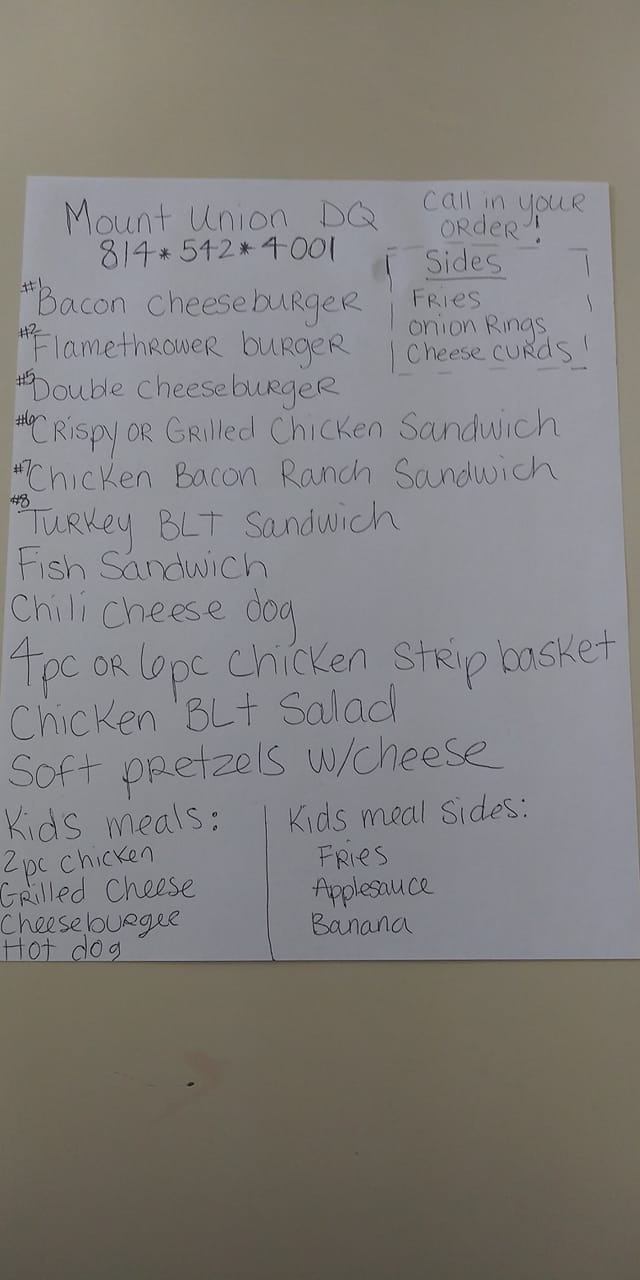 Mount Union DQ
814*542*4001
Call in your
order!
Sides
Fries
Onion Rings
Cheese curds
#1 Bacon cheeseburger
#2 Flamethrower burger
#5 Double cheeseburger
#6 Crispy or Grilled Chicken Sandwich
#7 Chicken Bacon Ranch Sandwich
#8 Turkey BLT Sandwich
Fish Sandwich
Chili cheese dog
4pc or 6pc chicken strip basket
Chicken BLT Salad
Soft pretzels w/cheese
Kids meals:
2pc chicken
Grilled cheese
Cheeseburger
Hot dog
Kids meal sides:
Fries
Applesauce
Banana